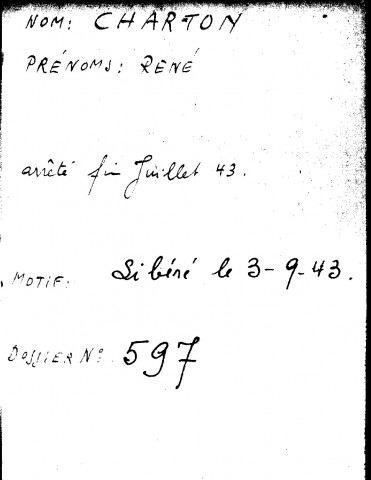 NOM: CHARTON
PRÉNOMS: RENÉ
arrêté fin Juillet 43.
MOTIF: Libéré le 3-9-43.
DOSSIER N° 597